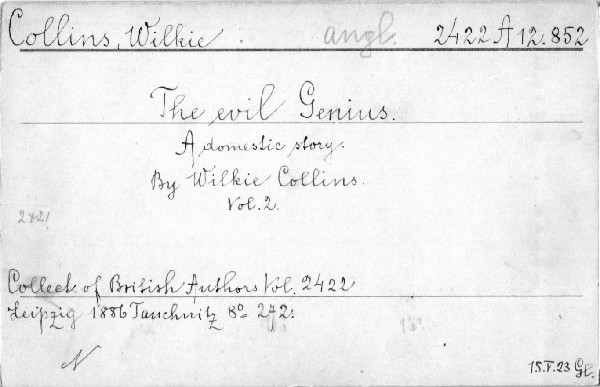 Collins, Wilkie angl. 2422 A 12.852
The evil Genius.
A domestic story.
By Wilkie Collins.
Vol. 2.
2421
Collect. of British Authors Vol. 2422
Leipzig 1886 Tauchnitz 8º 272.
N
15.V.23 Gl.